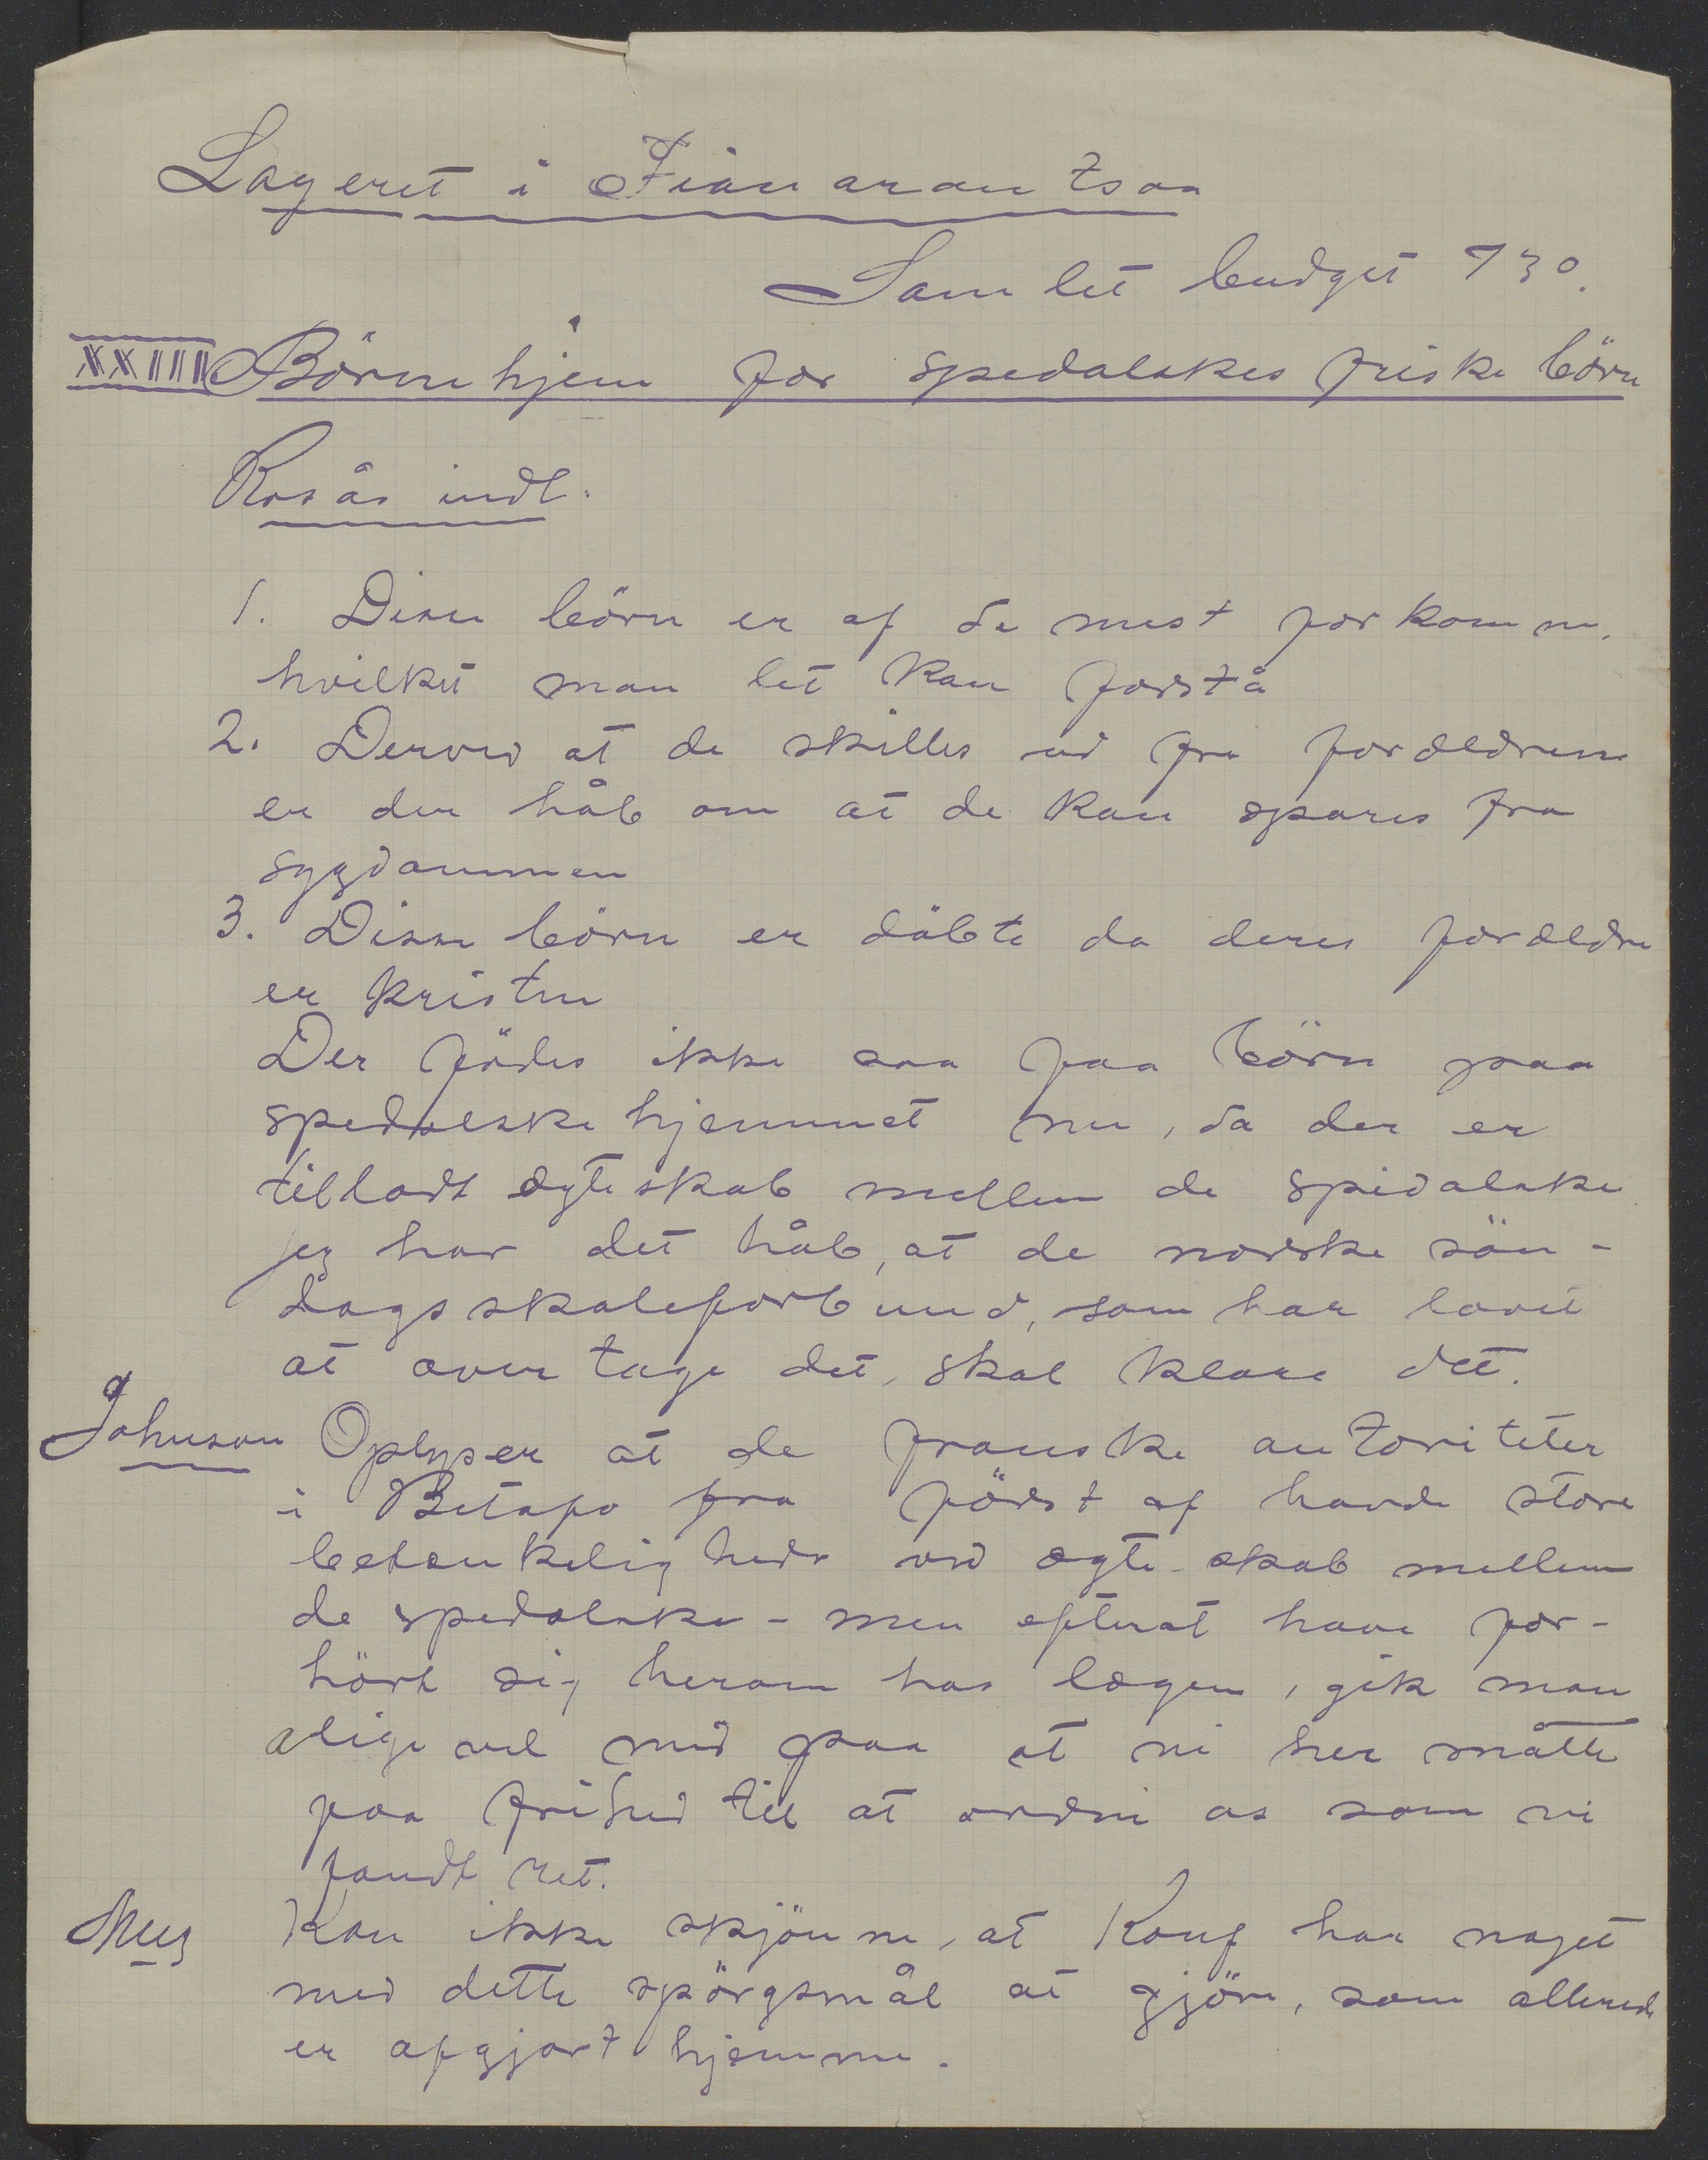 Lageret i Fianarantsoa
Samlet budget 730.
XXIII Börnehjem for spedalskes friske börn
Rosås indl.
1. Disse börn er af de mest forkomne.
hvilket man let kan forstå
2. Derved at de skilles ud fra forældrene
er der håb om at de kan spares fra
sygdommen
3. Disse börn er döbte da deres forældre
er kristne
Der födes ikke saa faa börn paa
spedalskehjemmet nu, da der er
tilladt ægteskab mellem de spedalske
jeg har det håb, at de norske sön-
dagsskoleforbund, som har lovet
at overtage det, skal klare det.
Johnson Oplyser at de franske autoriteter
i Betafo fra först af havde store
betænkeligheder ved ægte-skab mellem
de spedalske - men efterat have for-
hört sig herom hos lægen, gik man
alligevel med paa at vi her måtte
faa frihed til at ordne os som vi
fandt ret.
Meeg Kan ikke skjönne, at Konf har noget
med dette spörgsmål at gjöre, som allerede
er afgjort hjemme.